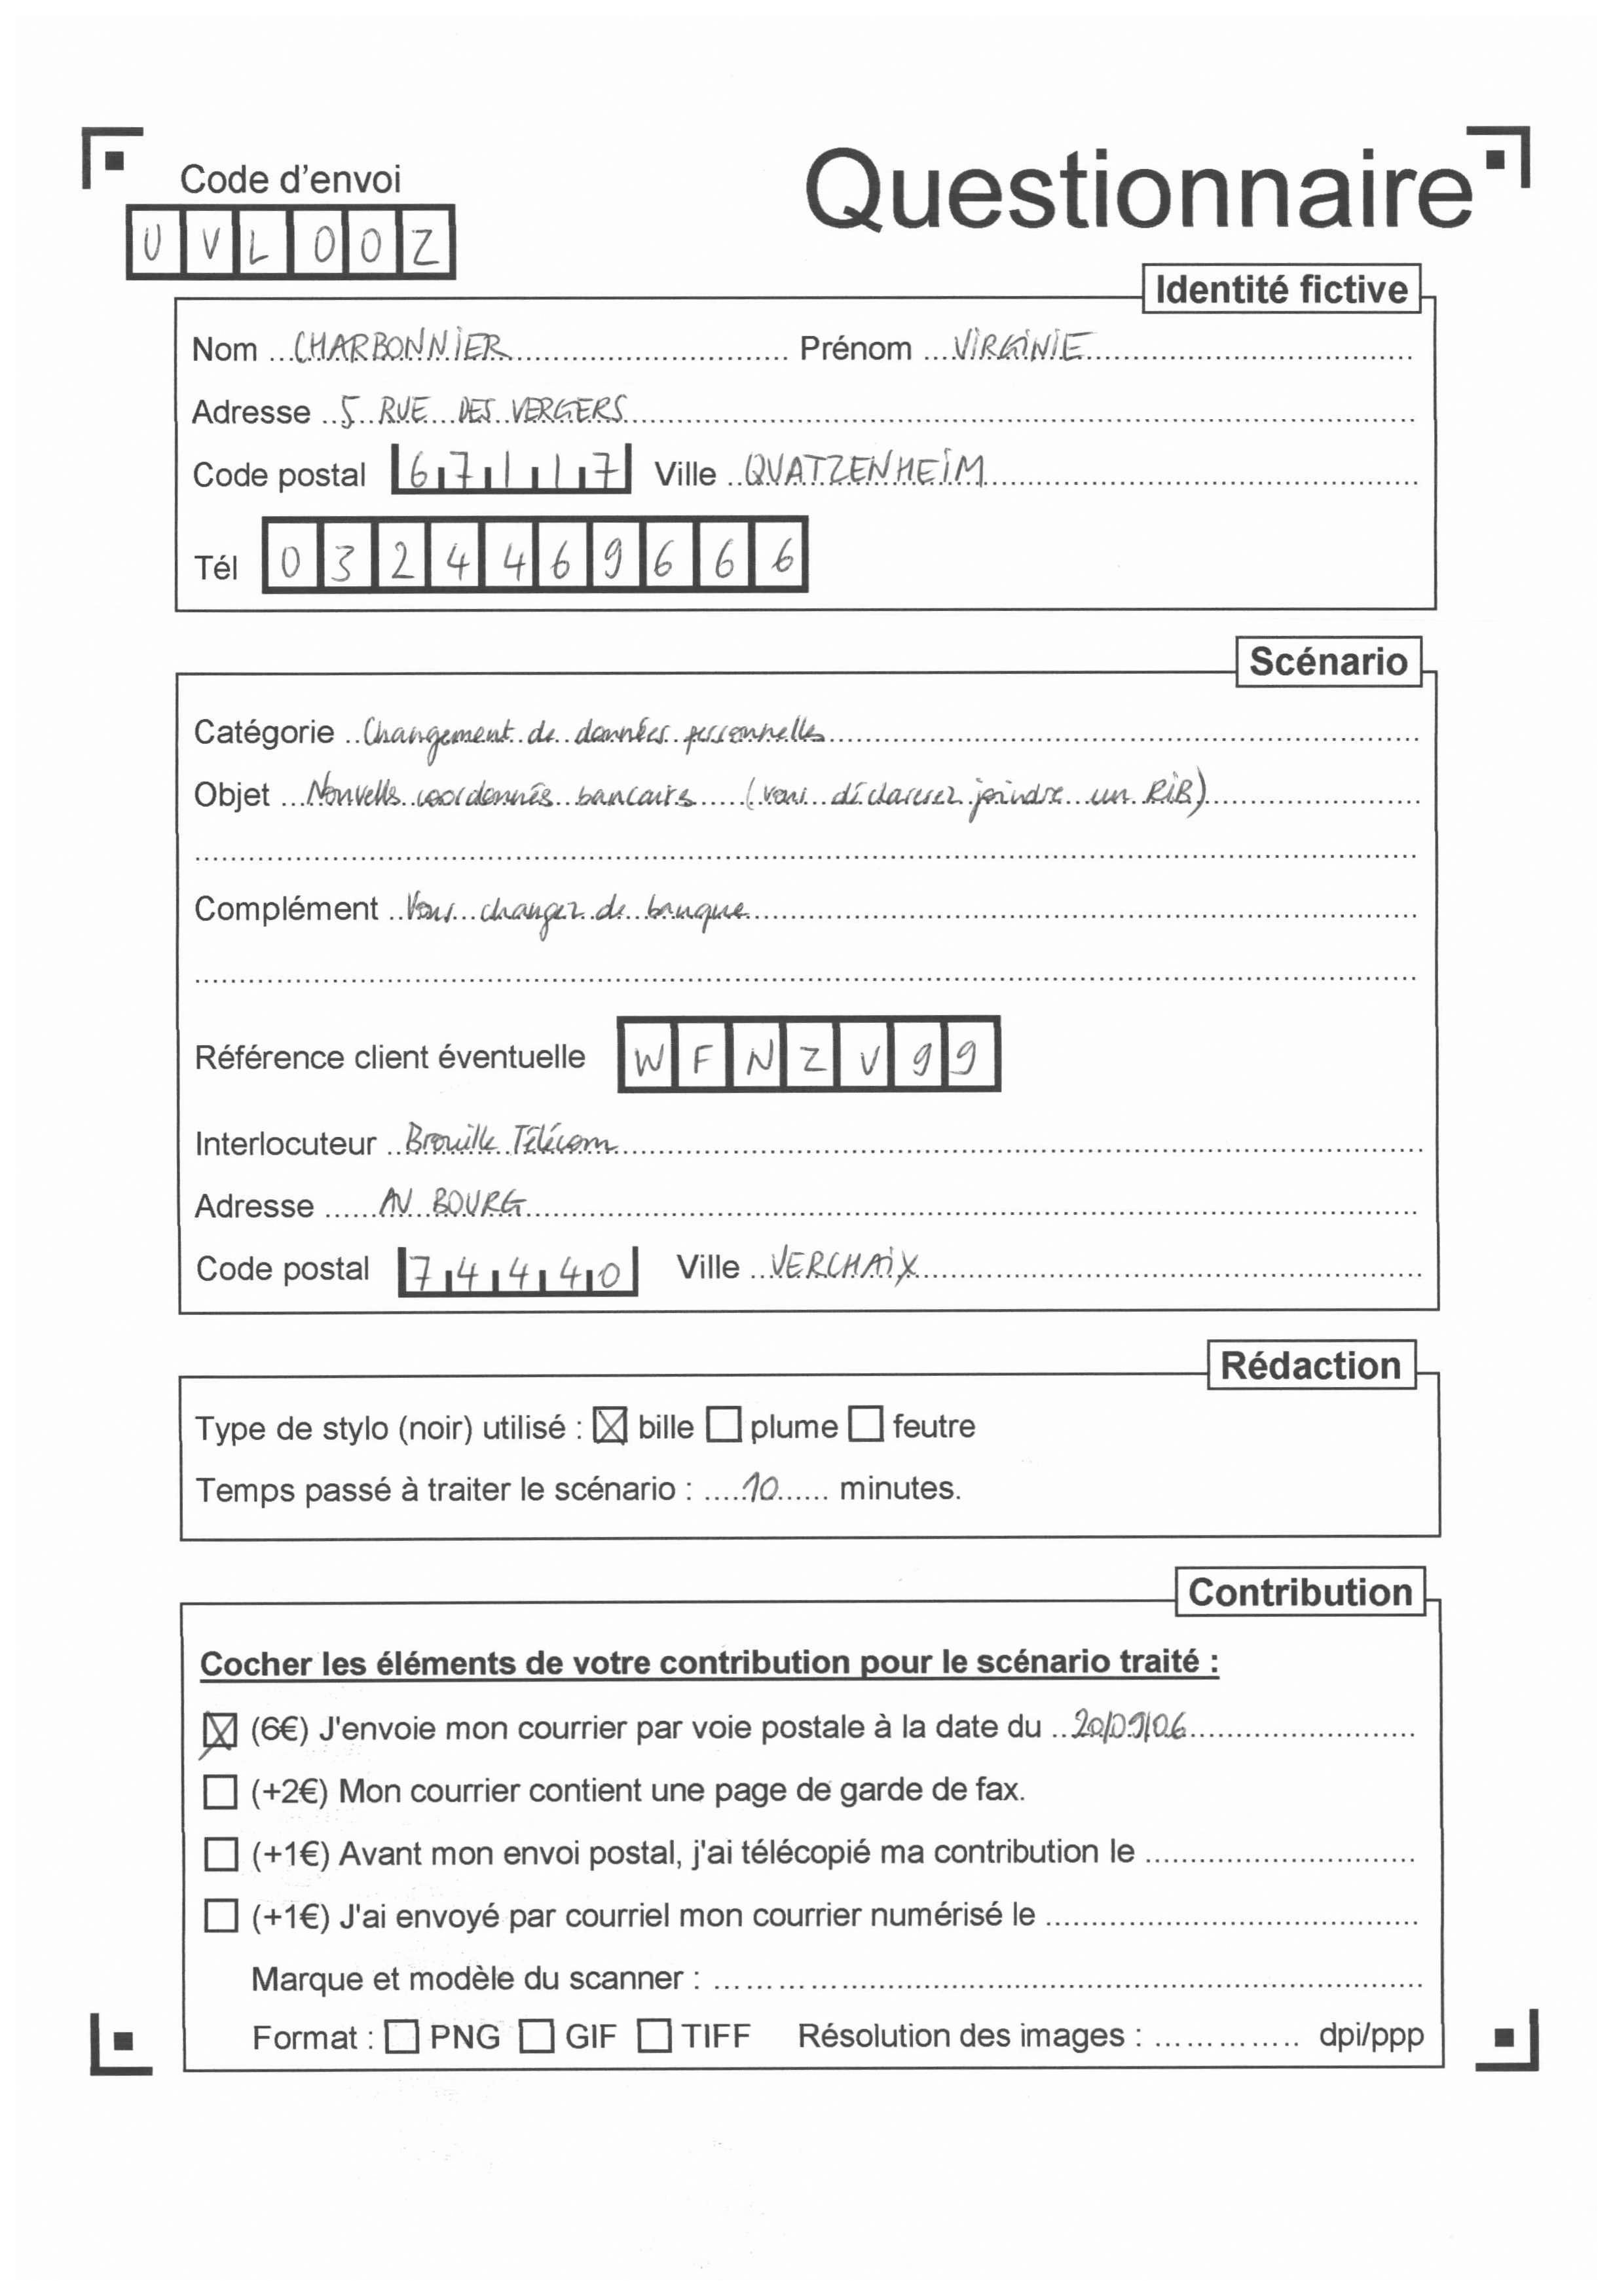 Questionnaire
Code d'envoi
UVL00Z
Identité fictive
Nom ... CHARBONNIER ... Prénom ... VIRGINIE
Adresse .. 5 RUE DES VERGERS
Code postal 67117 Ville .. QUATZENHEIM
Tél 0324469666
Scénario
Catégorie .. Changement de données personnelles
Objet ... Nouvelles coordonnés bancaires (vous déclarerez joindre un RIB)
Complément .. Vous changez de banque
Référence client éventuelle WFNZV99
Interlocuteur .. Brouille Télécom
Adresse ...... AU BOURG
Code postal 74440 Ville ... VERCHAIX
Rédaction
Type de stylo (noir) utilisé : ☒ bille ☐ plume ☐ feutre
Temps passé à traiter le scénario : ..... 10 ...... minutes.
Contribution
Cocher les éléments de votre contribution pour le scénario traité :
☒ (6€) J'envoie mon courrier par voie postale à la date du .. 20/09/06
☐ (+2€) Mon courrier contient une page de garde de fax.
☐ (+1€) Avant mon envoi postal, j'ai télécopié ma contribution le
☐ (+1€) J'ai envoyé par courriel mon courrier numérisé le
Marque et modèle du scanner :
Format : ☐ PNG ☐ GIF ☐ TIFF Résolution des images : .............. dpi/ppp